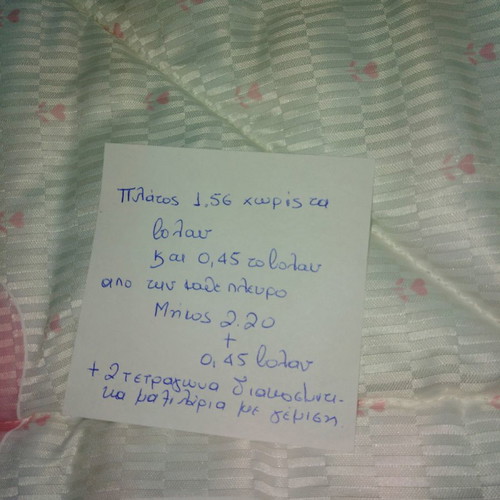 Πλάτος 1.56 χωρίς τα
βολαν
και 0,45 το βολαν
απο την καθε πλευρο
Μήκος 2.20
+
0,45 βολαν
+ 2 τετραγωνα διακοσμητι-
κα μαξιλάρια με γέμιση